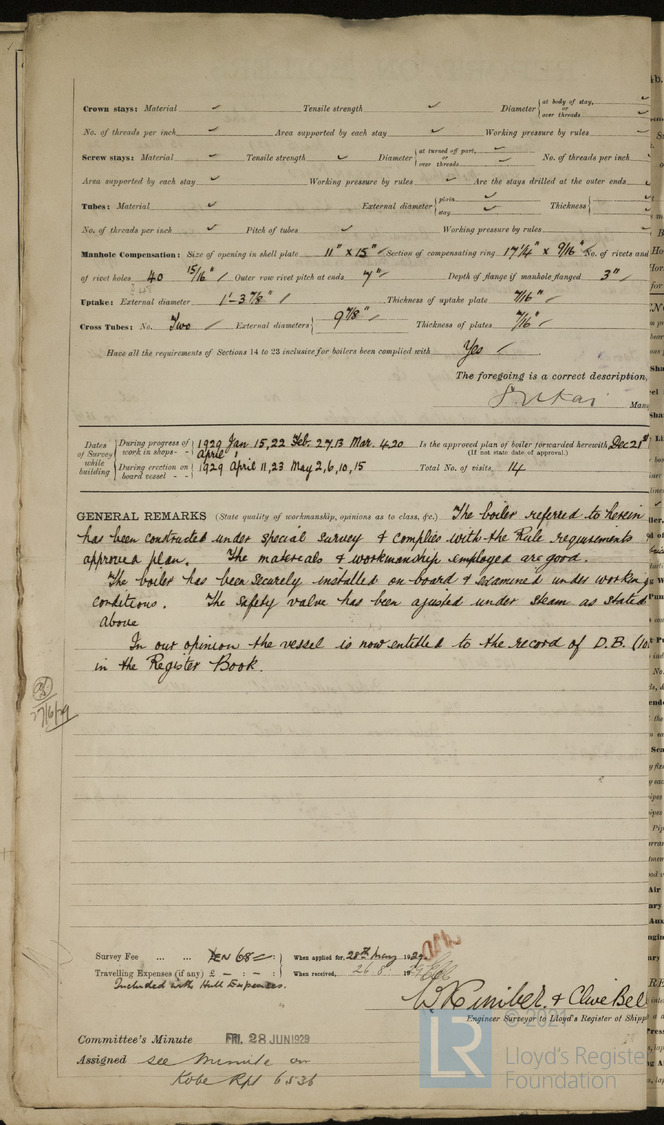 Crown stays: Material ✓ Tensile strength ✓ Diameter {at body of stay, or over threads ✓
No. of threads per inch ✓ Area supported by each stay ✓ Working pressure by rules ✓
Screw stays: Material ✓ Tensile strength ✓ Diameter {at turned off part, or over threads ✓ No. of threads per inch ✓
Area supported by each stay ✓ Working pressure by rules ✓ Are the stays drilled at the outer ends ✓
Tubes: Material ✓ External diameter {plain stay ✓ Thickness {✓
No. of threads per inch ✓ Pitch of tubes ✓ Working pressure by rules ✓
Manhole Compensation: Size of opening in shell plate 11" x 15" Section of compensating ring 17 1/4" x 9/16" No. of rivets and
of rivet holes 40 15/16" Outer row rivet pitch at ends 7" Depth of flange if manhole flanged 3"
Uptake: External diameter 1'-3 7/8" Thickness of uptake plate 7/16"
Cross Tubes: No. Two External diameters { 9 7/8" Thickness of plates 7/16"
Have all the requirements of Sections 14 to 23 inclusive for boilers been complied with Yes
The foregoing is a correct description,
Man
Dates of Survey while building {During progress of work in shops - - } 1929 Jan 15, 22 Feb. 27.13 Mar. 4.20 April 1 Is the approved plan of boiler forwarded herewith Dec 21st
(If not state date of approval.)
{During erection on board vessel - - } 1929 April 11, 23 May 2, 6, 10, 15 Total No. of visits 14
GENERAL REMARKS (State quality of workmanship, opinions as to class, &c.) The boiler referred to herein
has been constructed under special survey & complies with the Rule requirements
approved plan. The materials & workmanship employed are good.
The boiler has been securely installed on board & examined under working
conditions. The safety valve has been ajusted under steam as stated
above
In our opinion the vessel is now entitled to the record of D.B. (10
in the Register Book.
27/6/29
Survey Fee ... ... YEN 68 : When applied for, 28th May 1929
Travelling Expenses (if any) £ - : - : When received, 26.8. 19
Included with Hull Expenses.
W Kimber. & Clive Bel
Engineer Surveyor to Lloyd's Register of Shipp
Committee's Minute FRI. 28 JUN 1929
Assigned see minute on
Kobe Rpt 6536
© 2021
LR Lloyd's Register
Foundation